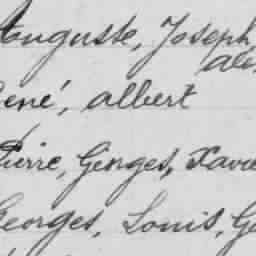 Auguste, Joseph
René, albert
Pierre, Georges, Xavie
Georges, Louis, Ge